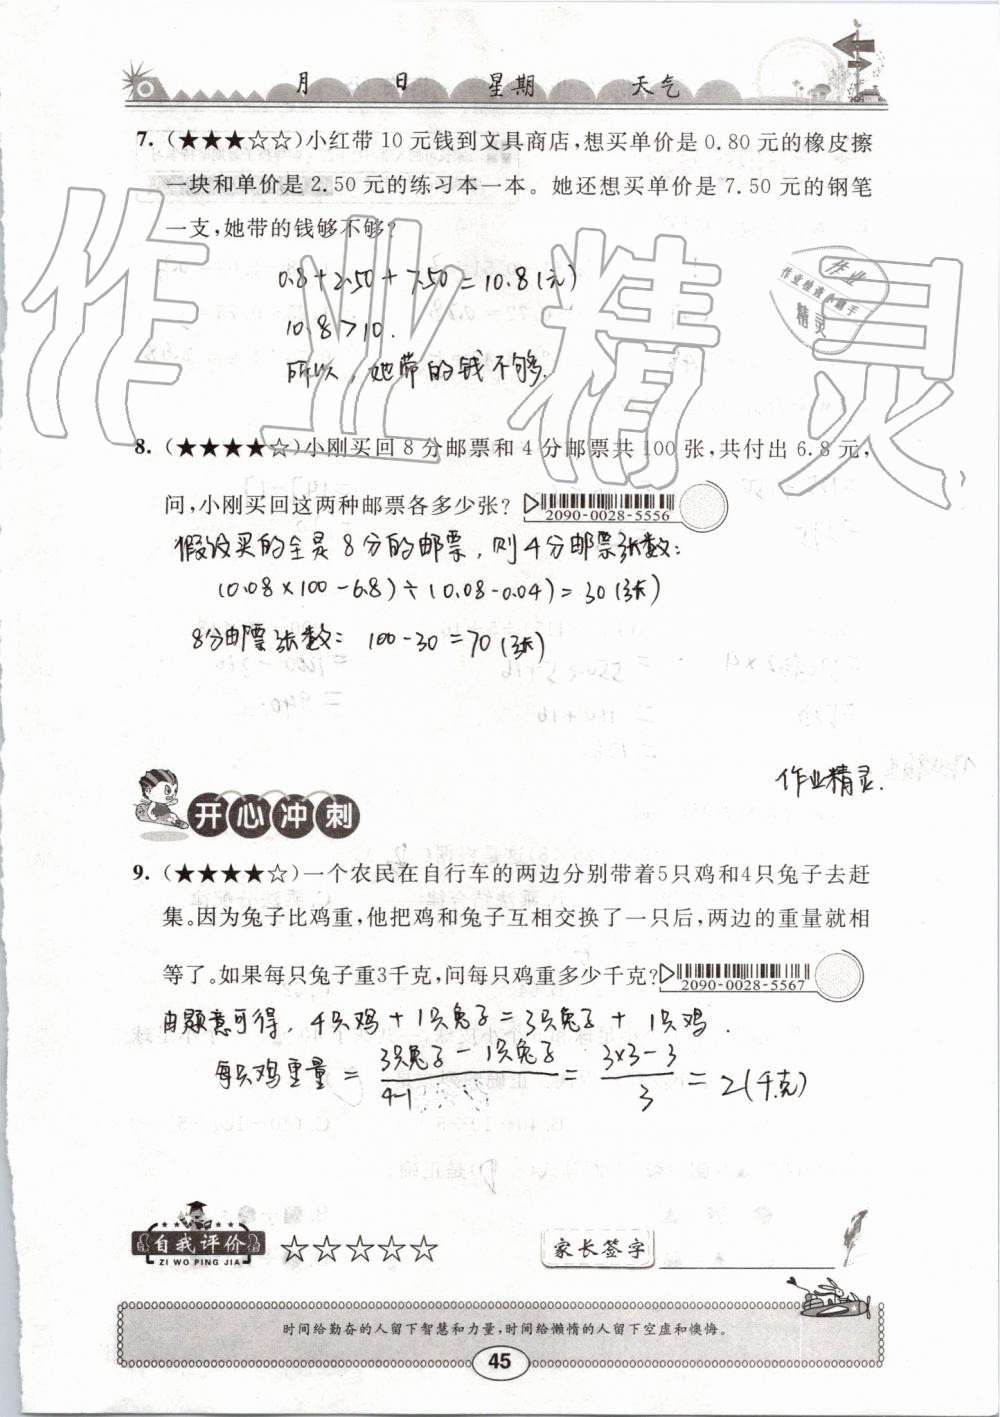 月 日 星期 天气
7. (★★★☆☆)小红带 10 元钱到文具商店,想买单价是 0.80 元的橡皮擦
一块和单价是 2.50 元的练习本一本。她还想买单价是 7.50 元的钢笔
一支,她带的钱够不够?
0.8+2.50+7.50=10.8(元)
10.8>10.
所以,她带的钱不够.
作业精灵
作业
作业检查小帮手
精灵
8. (★★★★☆)小刚买回 8 分邮票和 4 分邮票共 100 张,共付出 6.8 元,
问,小刚买回这两种邮票各多少张?
2090-0028-5556
假设买的全是8分的邮票,则4分邮票张数:
(0.08×100-6.8)÷(0.08-0.04)=30(张)
8分邮票张数: 100-30=70(张)
作业精灵.
开心冲刺
9. (★★★★☆)一个农民在自行车的两边分别带着5只鸡和4只兔子去赶
集。因为兔子比鸡重,他把鸡和兔子互相交换了一只后,两边的重量就相
等了。如果每只兔子重3千克,问每只鸡重多少千克?
2090-0028-5567
由题意可得,4只鸡+1只兔子=3只兔子+1只鸡.
每只鸡重量=(3只兔子-1只兔子)/(4-1)=(3×3-3)/3=2(千克)
自我评价 ☆☆☆☆☆ 家长签字
ZI WO PING JIA
时间给勤奋的人留下智慧和力量,时间给懒惰的人留下空虚和懊悔。
45